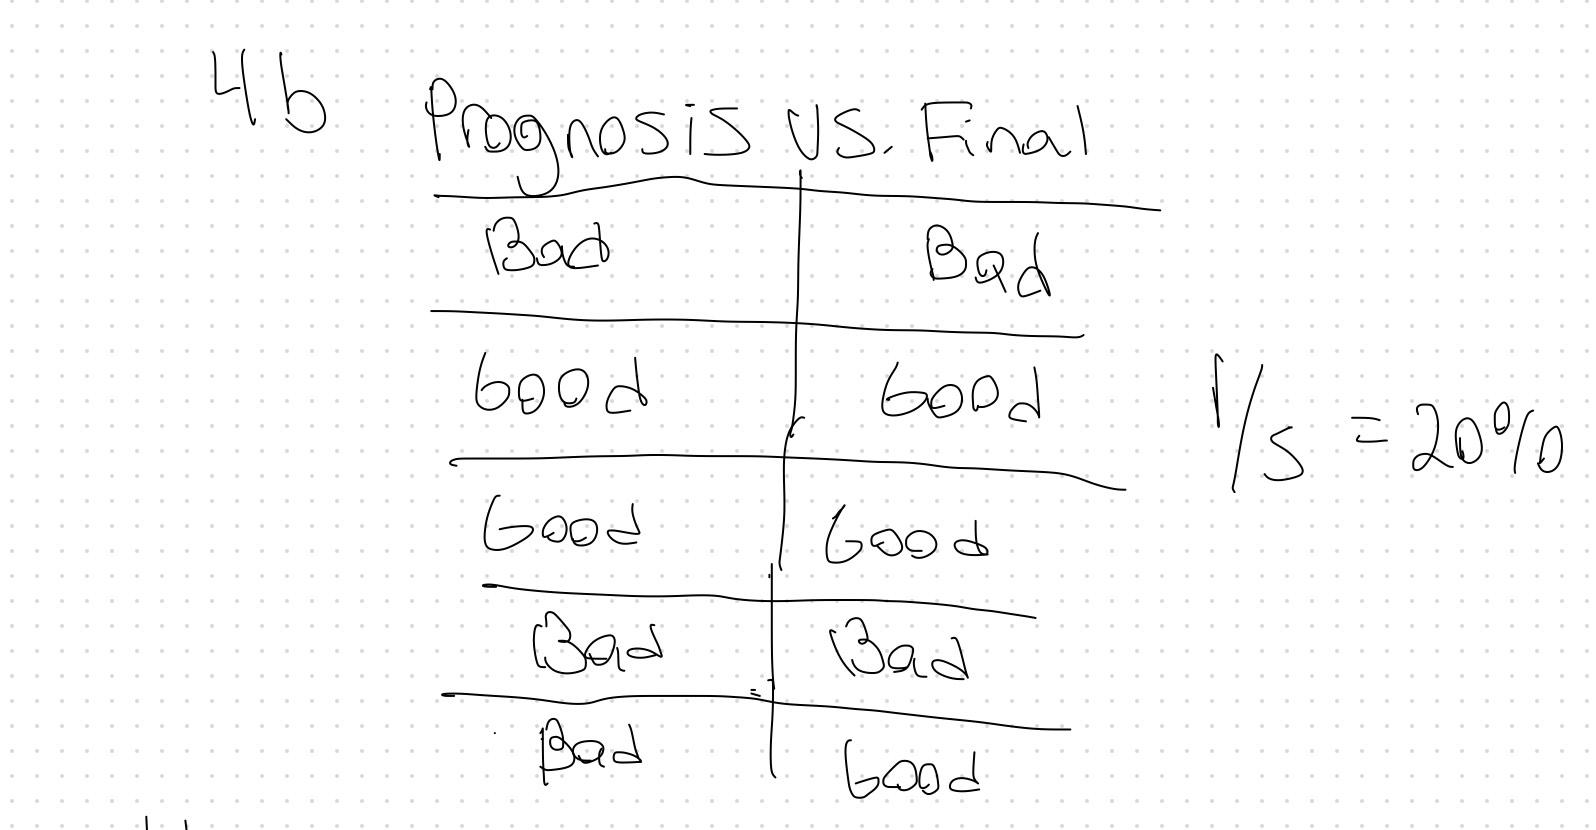 4b Prognosis vs. Final
Bad Bad
Good Good
1/5 = 20%
Good Good
Bad Bad
Bad Good